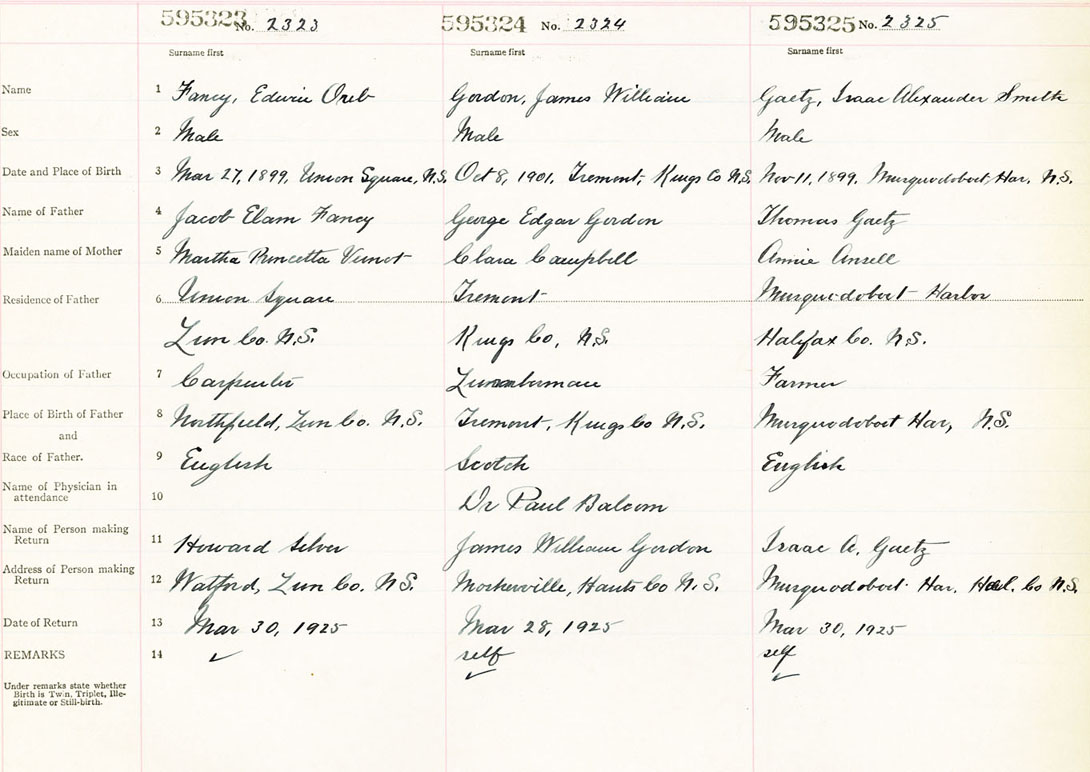 595323 No. 2323 595324 No. 2324 595325 No. 2325
Surname first Surname first Surname first
Name 1 Fancy, Edwin Oreb Gordon, James William Gaetz, Isaac Alexander Smith
Sex 2 Male Male Male
Date and Place of Birth 3 Mar 27, 1899, Union Square, N.S. Oct 8, 1901, Tremont, Kings Co N.S. Nov 11, 1899, Musquodoboit, Har, N.S.
Name of Father 4 Jacob Elam Fancy George Edgar Gordon Thomas Gaetz
Maiden name of Mother 5 Martha Clara Campbell Annie Ansell
Residence of Father 6 Union Square Tremont Musquodoboit Harbor
Lun Co. N.S. Kings Co, N.S. Halifax Co. N.S.
Occupation of Father 7 Carpenter Lumberman Farmer
Place of Birth of Father 8 Northfield, Lun Co. N.S. Tremont, Kings Co N.S. Musquodoboit Har, N.S.
and
Race of Father. 9 English Scotch English
Name of Physician in
attendance 10 Dr Paul Balcom
Name of Person making
Return 11 Howard Silver James William Gordon Isaac A. Gaetz
Address of Person making
Return 12 Watford, Lun Co. N.S. Mosherville, Hants Co N.S. Musquodoboit Har. Hal. Co N.S.
Date of Return 13 Mar 30, 1925 Mar 28, 1925 Mar 30, 1925
REMARKS 14 self self
Under remarks state whether
Birth is Twin, Triplet, Ille-
gitimate or Still-birth.